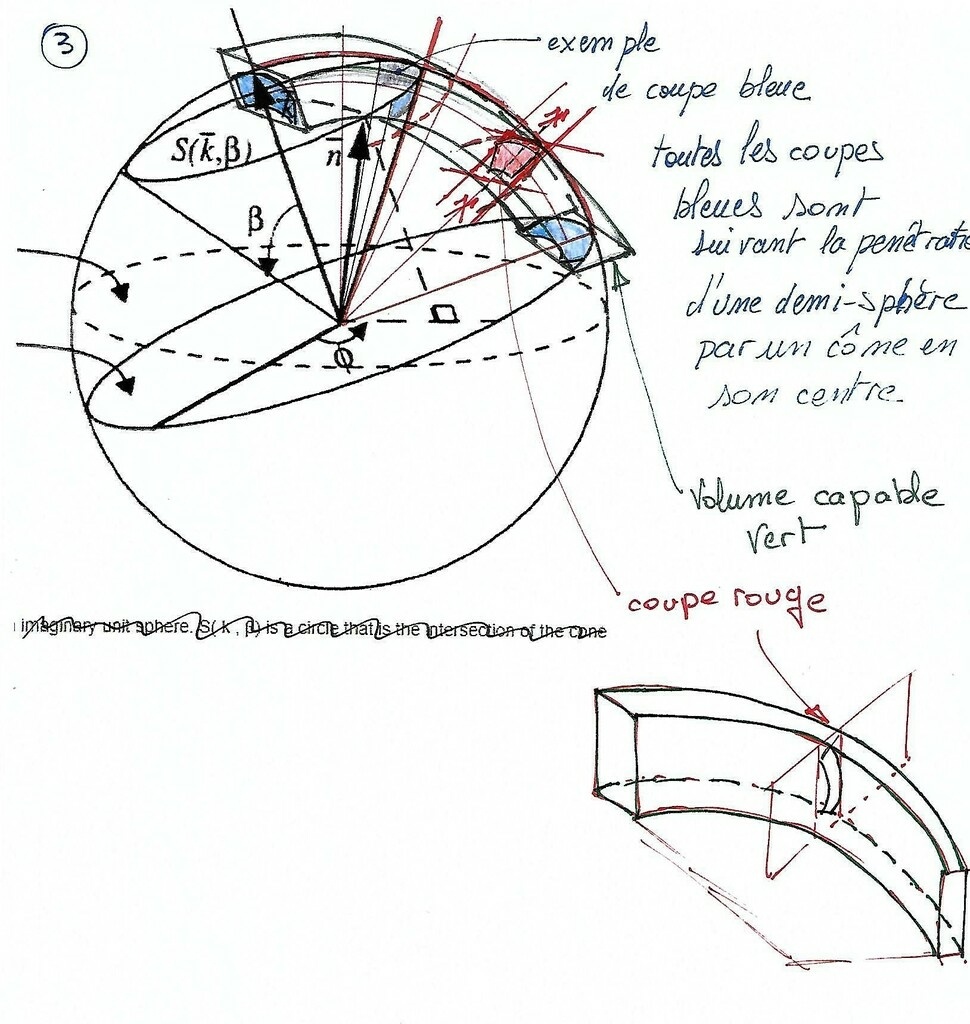 3
exemple
de coupe bleue
toutes les coupes
bleues sont
suivant la penétratie
d'une demi-sphère
par un cône en
son centre.
S(k̄,β)
n̄
k
β
φ
volume capable
vert
coupe rouge
imaginary unit sphere. S( k , β) is a circle that is the intersection of the cone